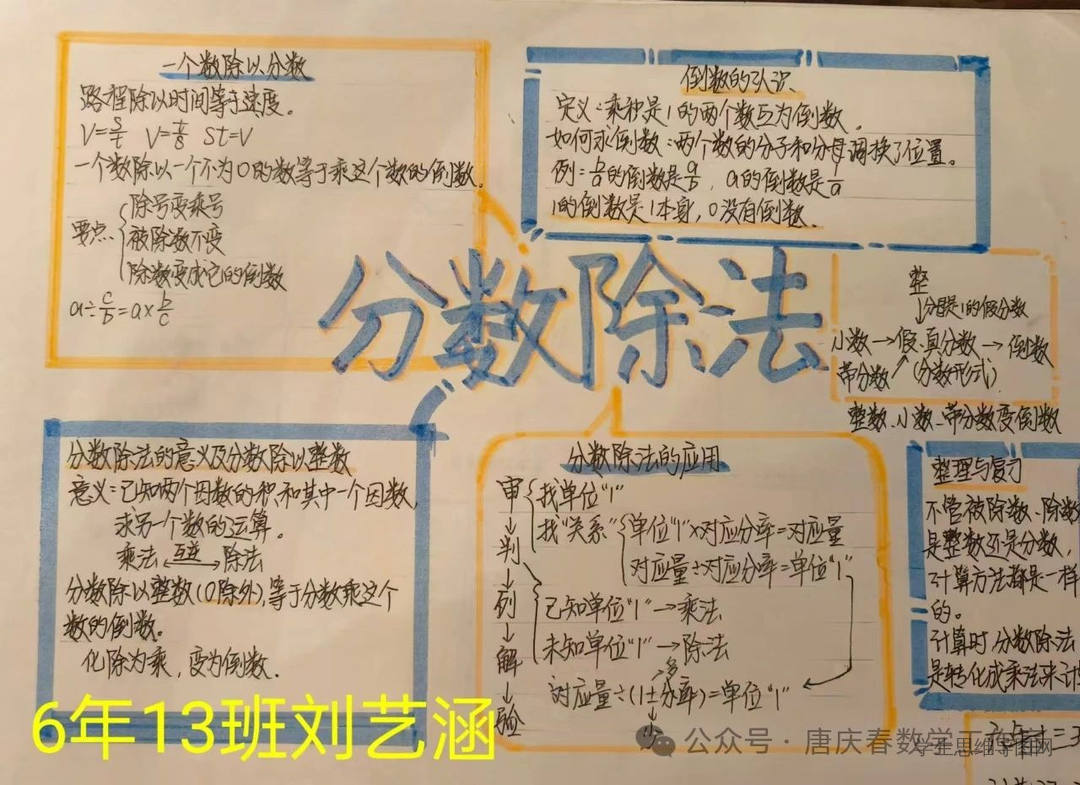 一个数除以分数
路程除以时间等于速度。
V=S/t V=t/8 St=V
一个数除以一个不为0的数等于乘这个数的倒数。
要点
除号变乘号
被除数不变
除数变成它的倒数
a÷c/b=a×b/c
倒数的认识
定义:乘积是1的两个数互为倒数。
如何求倒数:两个数的分子和分母调换了位置。
例:b/a的倒数是a/b,a的倒数是1/a
1的倒数是1本身,0没有倒数。
分数除法
整
↓分母是1的假分数
小数→假、真分数→倒数
带分数↗(分数形式)
整数、小数、带分数变倒数
分数除法的意义及分数除以整数
意义:已知两个因数的积和其中一个因数,
求另一个数的运算。
乘法 互逆 除法
分数除以整数(0除外),等于分数乘这个
数的倒数。
化除为乘,变为倒数.
分数除法的应用
审↓判↓列↓解↓验
找单位"1"
找"关系"
单位"1"×对应分率=对应量
对应量÷对应分率=单位"1"
已知单位"1"→乘法
未知单位"1"→除法
多
对应量÷(1±分率)=单位"1"
少
整理与复习
不管被除数、除数
是整数还是分数,
计算方法都是一样
的。
计算时,分数除法
是转化成乘法来计
6年13班刘艺涵
公众号·唐庆春数学工
学生思维导图网